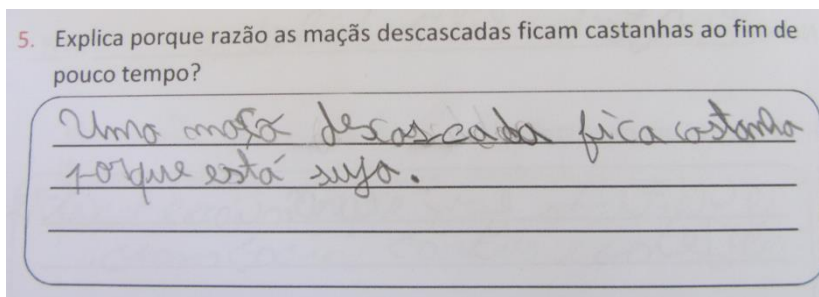 5. Explica porque razão as maçãs descascadas ficam castanhas ao fim de
pouco tempo?
Uma maçã descascada fica castanha
porque está suja.